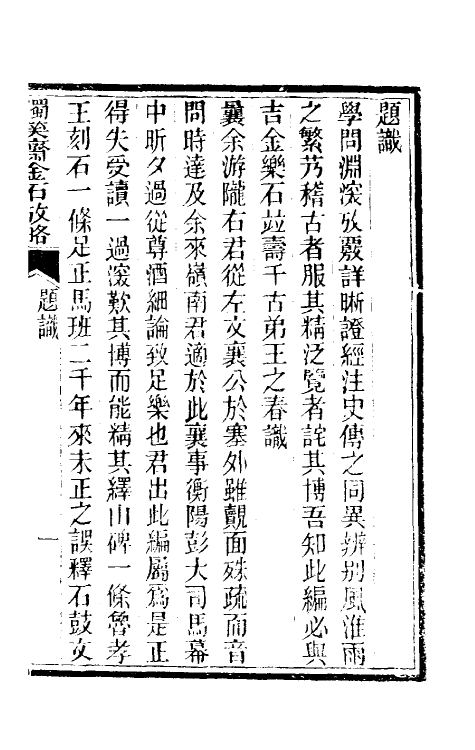 題識
學問淵深攷覈詳晰證經注史傳之同異辨别風淮雨
之繁艿稽古者服其精泛覽者詫其博吾知此編必與
吉金樂石竝壽千古弟王之春識
曩余游隴右君從左文襄公於塞外雖覿面殊疏而音
問時達及余來嶺南君適於此襄事衡陽彭大司馬幕
中昕夕過從尊酒細論致足樂也君出此編屬爲是正
得失受讀一過深歎其博而能精其繹山碑一條魯孝
王刻石一條足正馬班二千年來未正之誤釋石鼓文
獨笑齋金石攷略
題識
一